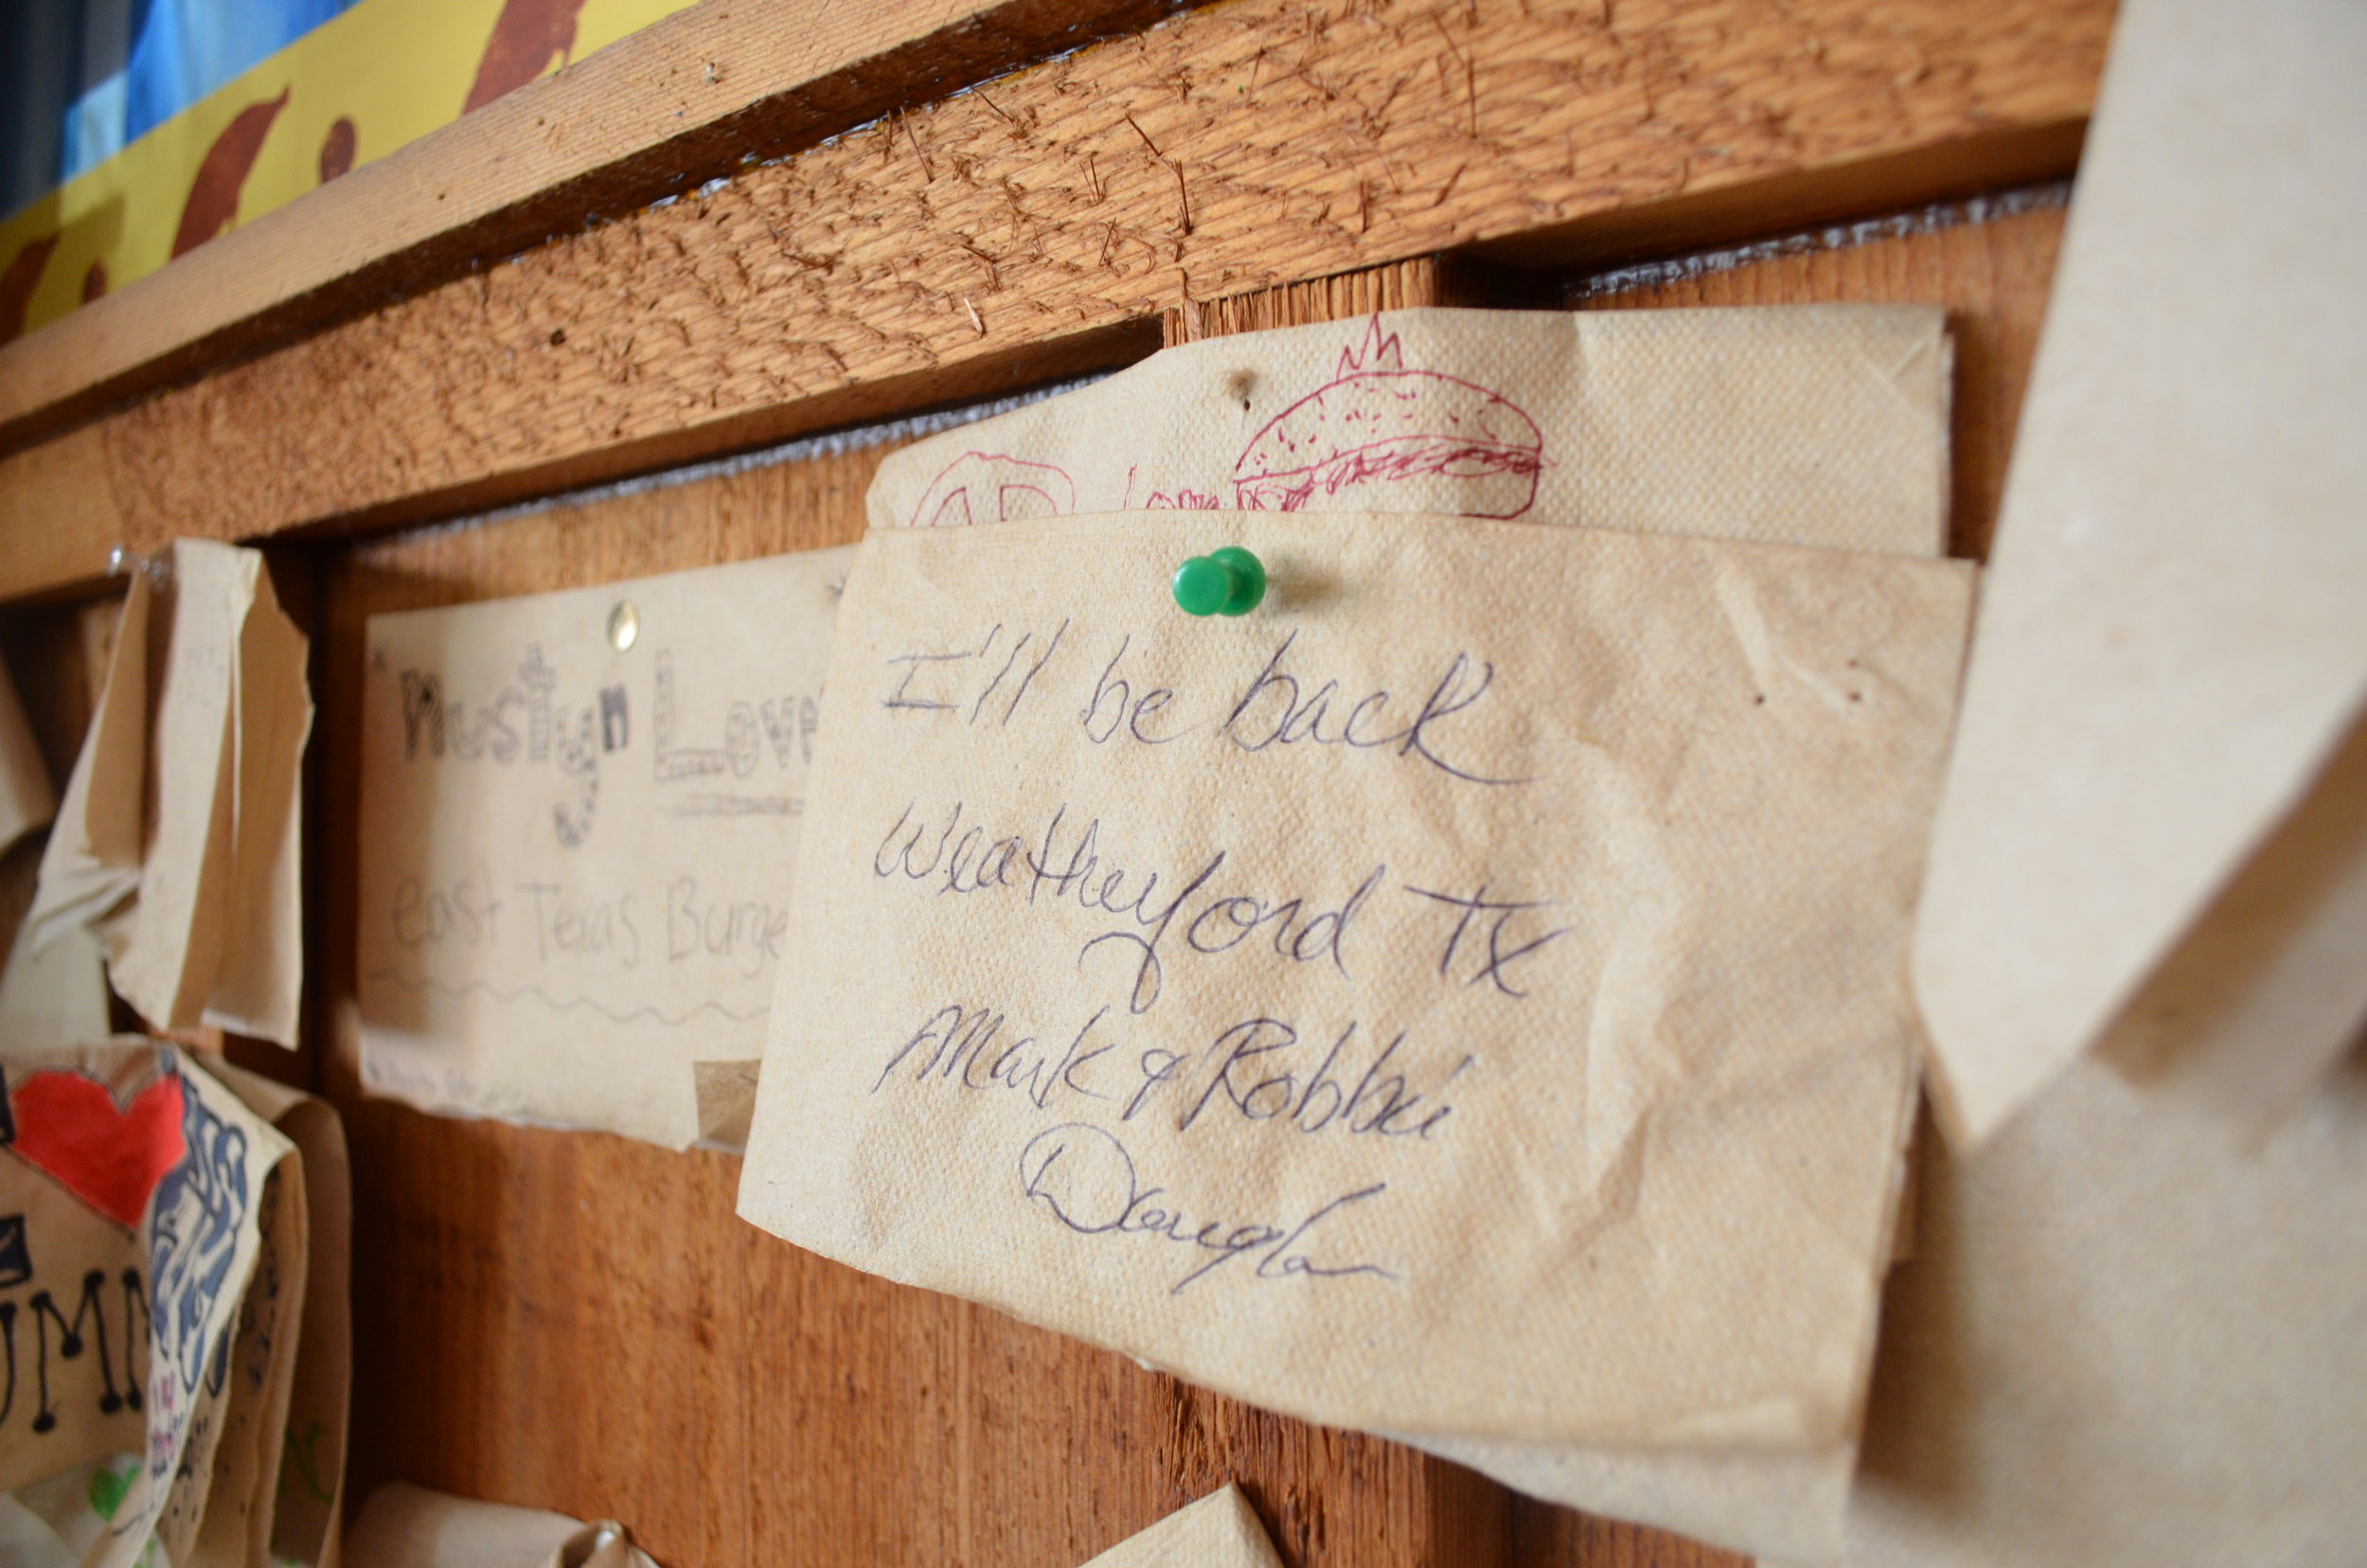 Love
I'll be back
Weatherford TX
Mark & Robbie
Douglas
Mostyn Love
east Texas Burge
UMM